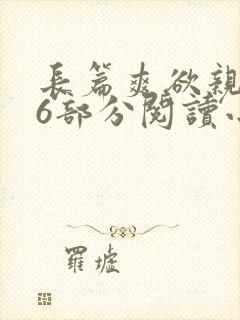 長篇爽欲親
6部分閱讀
羅墟